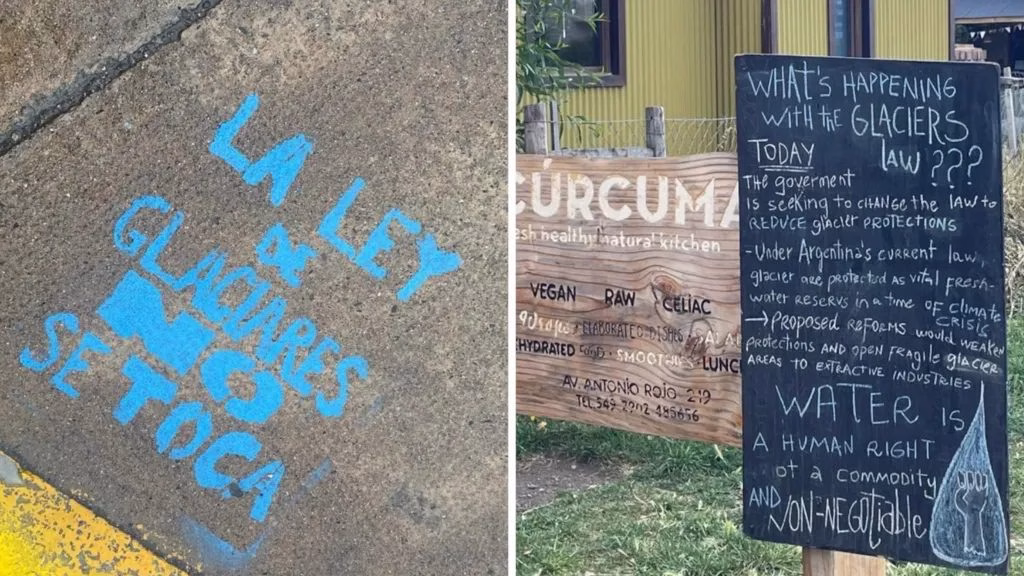 LA LEY
DE
GLACIARES
NO
SE TOCA
CÚRCUMA
esh healthy natural kitchen
VEGAN RAW CELIAC
Wraps ELABORATED DISHES
HYDRATED SMOOTHIES LUNC
AV. ANTONIO ROJO 219
TEL.549 2902 485656
WHAT'S HAPPENING
WITH the GLACIERS
LAW ???
TODAY
THE goverment
IS SEEKING to CHANGE the LAW to
REDUCE glacier PROTECTIONS
- Under Argentina's current law
glacier are protected as vital fresh-
water reservs in a time OF CLIMATE
CRISIS
→ Proposed REFORMS would WEAKEN
protections AND open fragile glacier
AREAS to EXTRACTIVE INDUSTRIES
WATER IS
A HUMAN RIGHT
ot a commodity
AND
NON-NEGOTIABLE